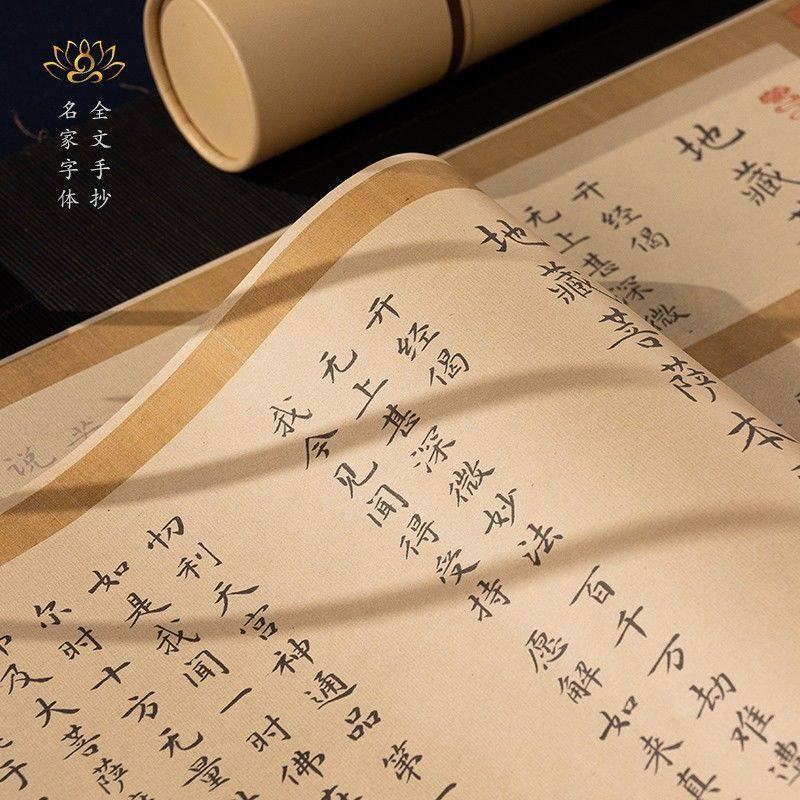 全文手抄
名家字体
地藏
开经偈
无上甚深微
地藏菩萨本
开经偈
无上甚深微妙法 百千万劫难遭
我今见闻得受持 愿解如来真
忉利天宫神通品第一
如是我闻一时佛
尔时十方无量
及大菩萨
于
说